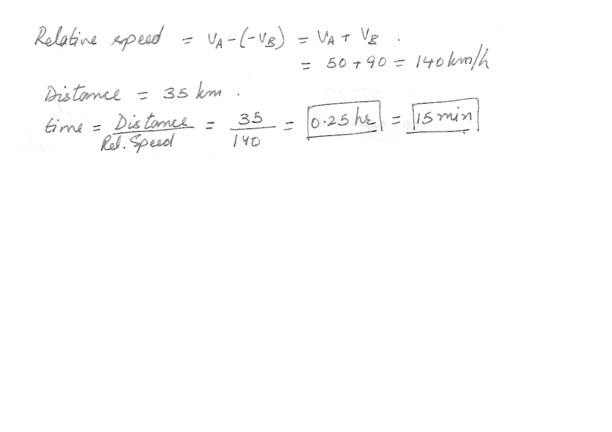 Relative speed = VA-(-VB) = VA + VB .
= 50 + 90 = 140 km/h
Distance = 35 km .
time = Distance/Rel. Speed = 35/140 = 0.25 hr = 15 min